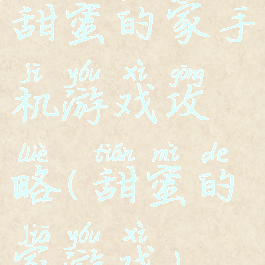 甜蜜的家手
jī yóu xì gōng
机游戏攻
lüè tián mì de
略(甜蜜的
jiā yóu xì
家游戏)